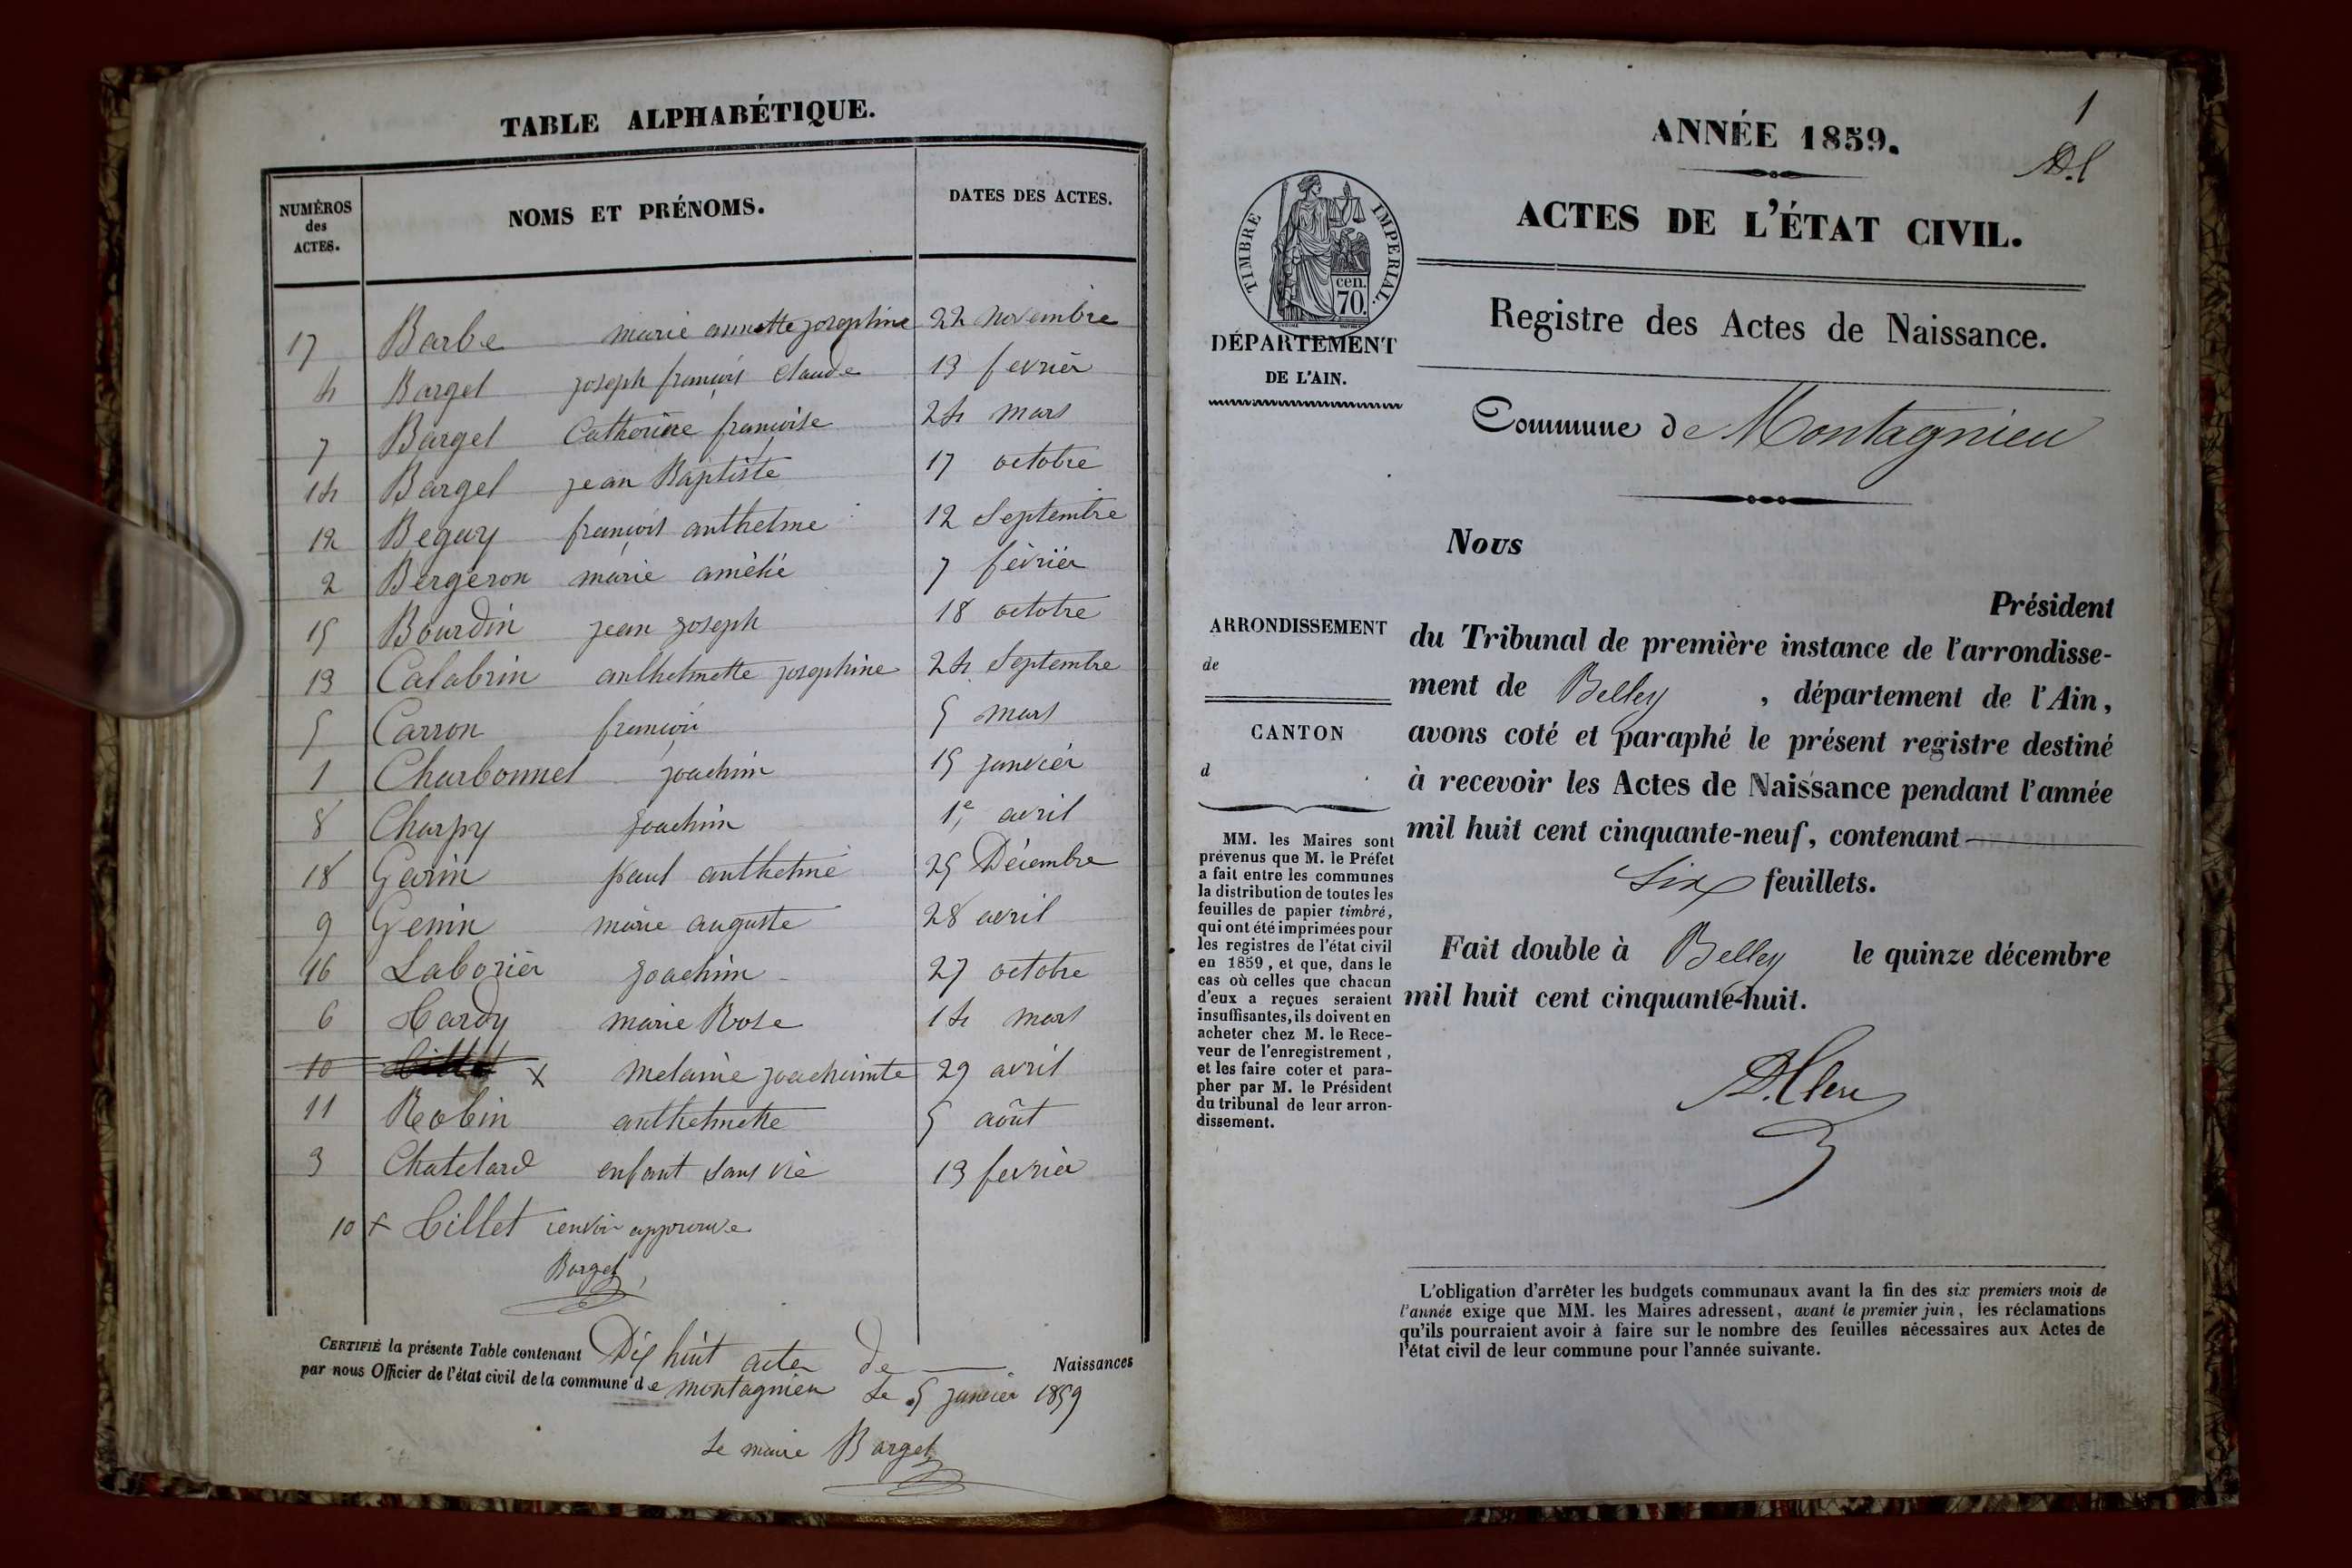 TABLE ALPHABÉTIQUE.
NUMÉROS des ACTES.
NOMS ET PRÉNOMS.
DATES DES ACTES.
17 Barbe marie annette josephine 22 novembre
4 Bargel joseph françois claude 13 fevrier
7 Bargel Catherine françoise 24 mars
14 Bargel jean Baptiste 17 octobre
12 Beguy françois anthelme 12 Septembre
2 Bergeron marie amélie 7 février
15 Bourdin jean joseph 18 octobre
13 Calabrin anthelmette josephine 24 Septembre
5 Carron françois 5 mars
1 Charbonnet joachim 15 janvier
8 Charpy joachim 1er avril
18 Garin paul anthelme 25 Décembre
9 Genin marie auguste 28 avril
16 Laborier joachim 27 octobre
6 Hardy marie Rose 14 mars
10 x melanie 29 avril
11 Robin anthelmette 5 août
3 Chatelard enfant sans vie 13 fevrier
10 x renvoi approuve
Bargel
CERTIFIÉ la présente Table contenant Dix huit actes de Naissances
par nous Officier de l'état civil de la commune de montagnieu Le 5 janvier 1859
Le maire Bargel
1
ANNÉE 1859.
ACTES DE L'ÉTAT CIVIL.
TIMBRE IMPERIAL.
cen. 70.
DÉPARTEMENT
DE L'AIN.
Registre des Actes de Naissance.
Commune de Montagnieu
Nous
Président
ARRONDISSEMENT
de
CANTON
d
du Tribunal de première instance de l'arrondisse-
ment de Belley , département de l'Ain,
avons coté et paraphé le présent registre destiné
à recevoir les Actes de Naissance pendant l'année
mil huit cent cinquante-neuf, contenant
Six feuillets.
Fait double à Belley le quinze décembre
mil huit cent cinquante-huit.
MM. les Maires sont
prévenus que M. le Préfet
a fait entre les communes
la distribution de toutes les
feuilles de papier timbré,
qui ont été imprimées pour
les registres de l'état civil
en 1859, et que, dans le
cas où celles que chacun
d'eux a reçues seraient
insuffisantes, ils doivent en
acheter chez M. le Rece-
veur de l'enregistrement,
et les faire coter et para-
pher par M. le Président
du tribunal de leur arron-
dissement.
L'obligation d'arrêter les budgets communaux avant la fin des six premiers mois de
l'année exige que MM. les Maires adressent, avant le premier juin, les réclamations
qu'ils pourraient avoir à faire sur le nombre des feuilles nécessaires aux Actes de
l'état civil de leur commune pour l'année suivante.